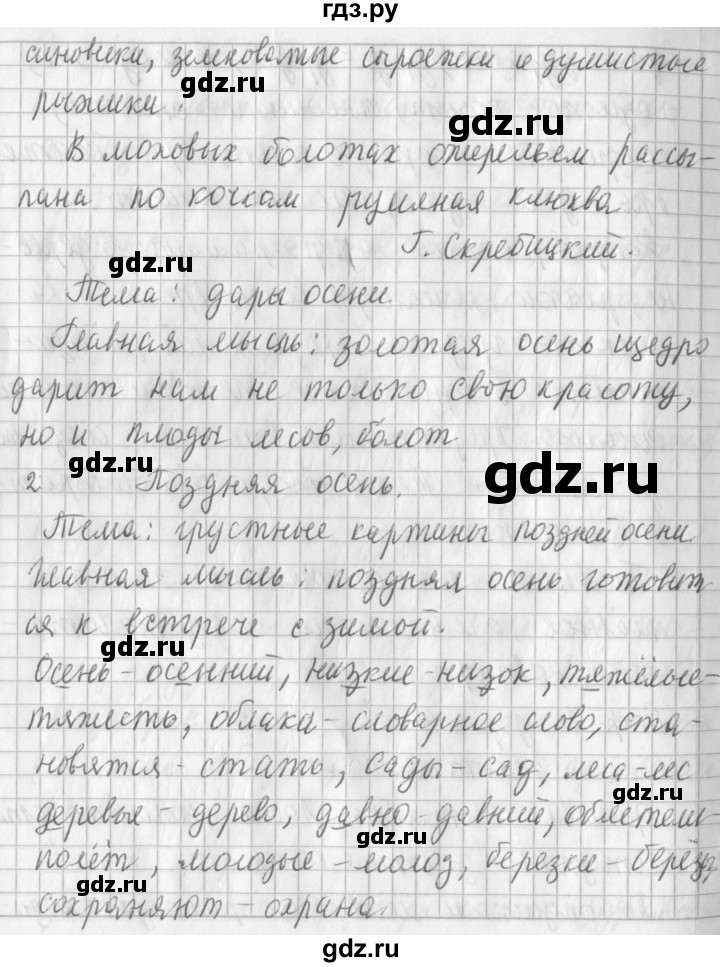 гдз.ру
синовики, земковатые сыроежки и душистые
gdz.ru
рыжики.
gdz.ru
В моховых болотах ожерельем рассы-
пана по кочкам румяная клюква
Г. Скребицкий.
gdz.ru
Тема: дары осени.
Главная мысль: золотая осень щедро
дарит нам не только свою красоту,
но и плоды лесов, болот
gdz.ru
gdz.ru
2 Поздняя осень.
Тема: грустные картины поздней осени.
Главная мысль: поздняя осень готовит-
ся к встрече с зимой.
gdz.ru
Осень - осенний, низкие - низок, тяжёлые -
тяжесть, облака - словарное слово, ста-
новятся - стать, сады - сад, леса - лес
gdz.ru
деревья - дерево, давно - давний, облетели -
gdz.ru
полёт, молодые - молод, березки - берёза,
gdz.ru
сохраняют - охрана.
gdz.ru